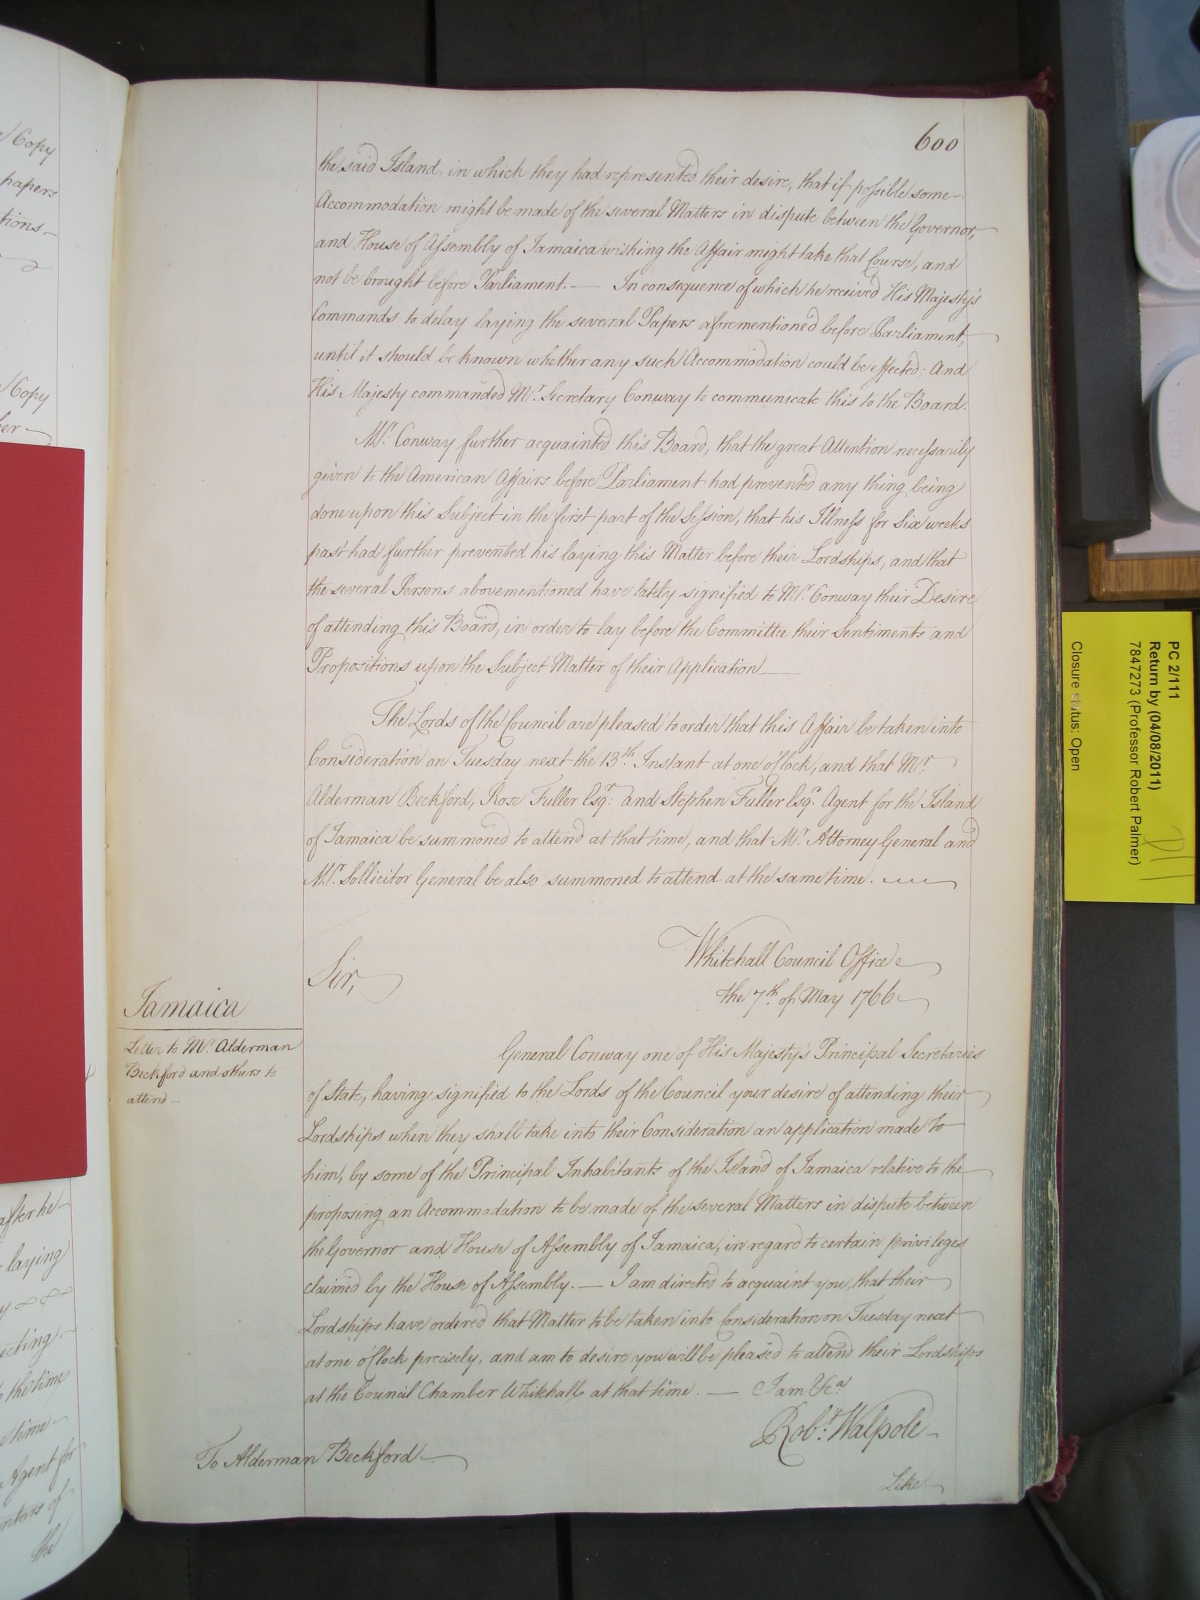 600
the said Island, in which they had represented their desire, that if possible some
Accommodation might be made of the several Matters in dispute between the Governor,
and House of Assembly of Jamaica wishing the Affair might take that Course, and
not be brought before Parliament. — In consequence of which he received His Majesty's
Commands to delay laying the several Papers aforementioned before Parliament,
until it should be known whether any such Accommodation could be effected; And
His Majesty commanded Mr. Secretary Conway to communicate this to the Board.
Mr. Conway further acquainted this Board, that the great Attention necessarily
given to the American Affairs before Parliament had prevented any thing being
done upon this Subject in the first part of the Session, that his Illness for Six weeks
past had further prevented his laying this Matter before their Lordships, and that
the several Persons abovementioned have lately signified to Mr. Conway their Desire
of attending this Board, in order to lay before the Committee their Sentiments and
Propositions upon the Subject Matter of their Application —
The Lords of the Council are pleased to order that this Affair be taken into
Consideration on Tuesday next the 13th. Instant at one o'Clock, and that Mr.
Alderman Beckford, Rose Fuller Esqr. and Stephen Fuller Esqr. Agent for the Island
of Jamaica be summoned to attend at that time, and that Mr. Attorney General and
Mr. Sollicitor General be also summoned to attend at the same time.
Whitehall Council Office
Sir,
the 7th. of May 1766
Jamaica
Letter to Mr. Alderman
Beckford and others to
attend —
General Conway one of His Majesty's Principal Secretaries
of State, having signified to the Lords of the Council your desire of attending their
Lordships when they shall take into their Consideration an application made to
him, by some of the Principal Inhabitants of the Island of Jamaica relative to the
proposing an Accommodation to be made of the several Matters in dispute between
the Governor and House of Assembly of Jamaica, in regard to certain privileges
claimed by the House of Assembly. — I am directed to acquaint you, that their
Lordships have ordered that Matter to be taken into Consideration on Tuesday next
at one o'Clock precisely, and am to desire you will be pleased to attend their Lordships
at the Council Chamber Whitehall at that time. — I am &ca.
Robt. Walpole
To Alderman Beckford
Like
Copy
papers
tions
Copy
her
after he
laying
ecting
the time
time
Agent for
the
PC 2/111
Return by (04/08/2011)
7847273 (Professor Robert Palmer)
Closure status: Open